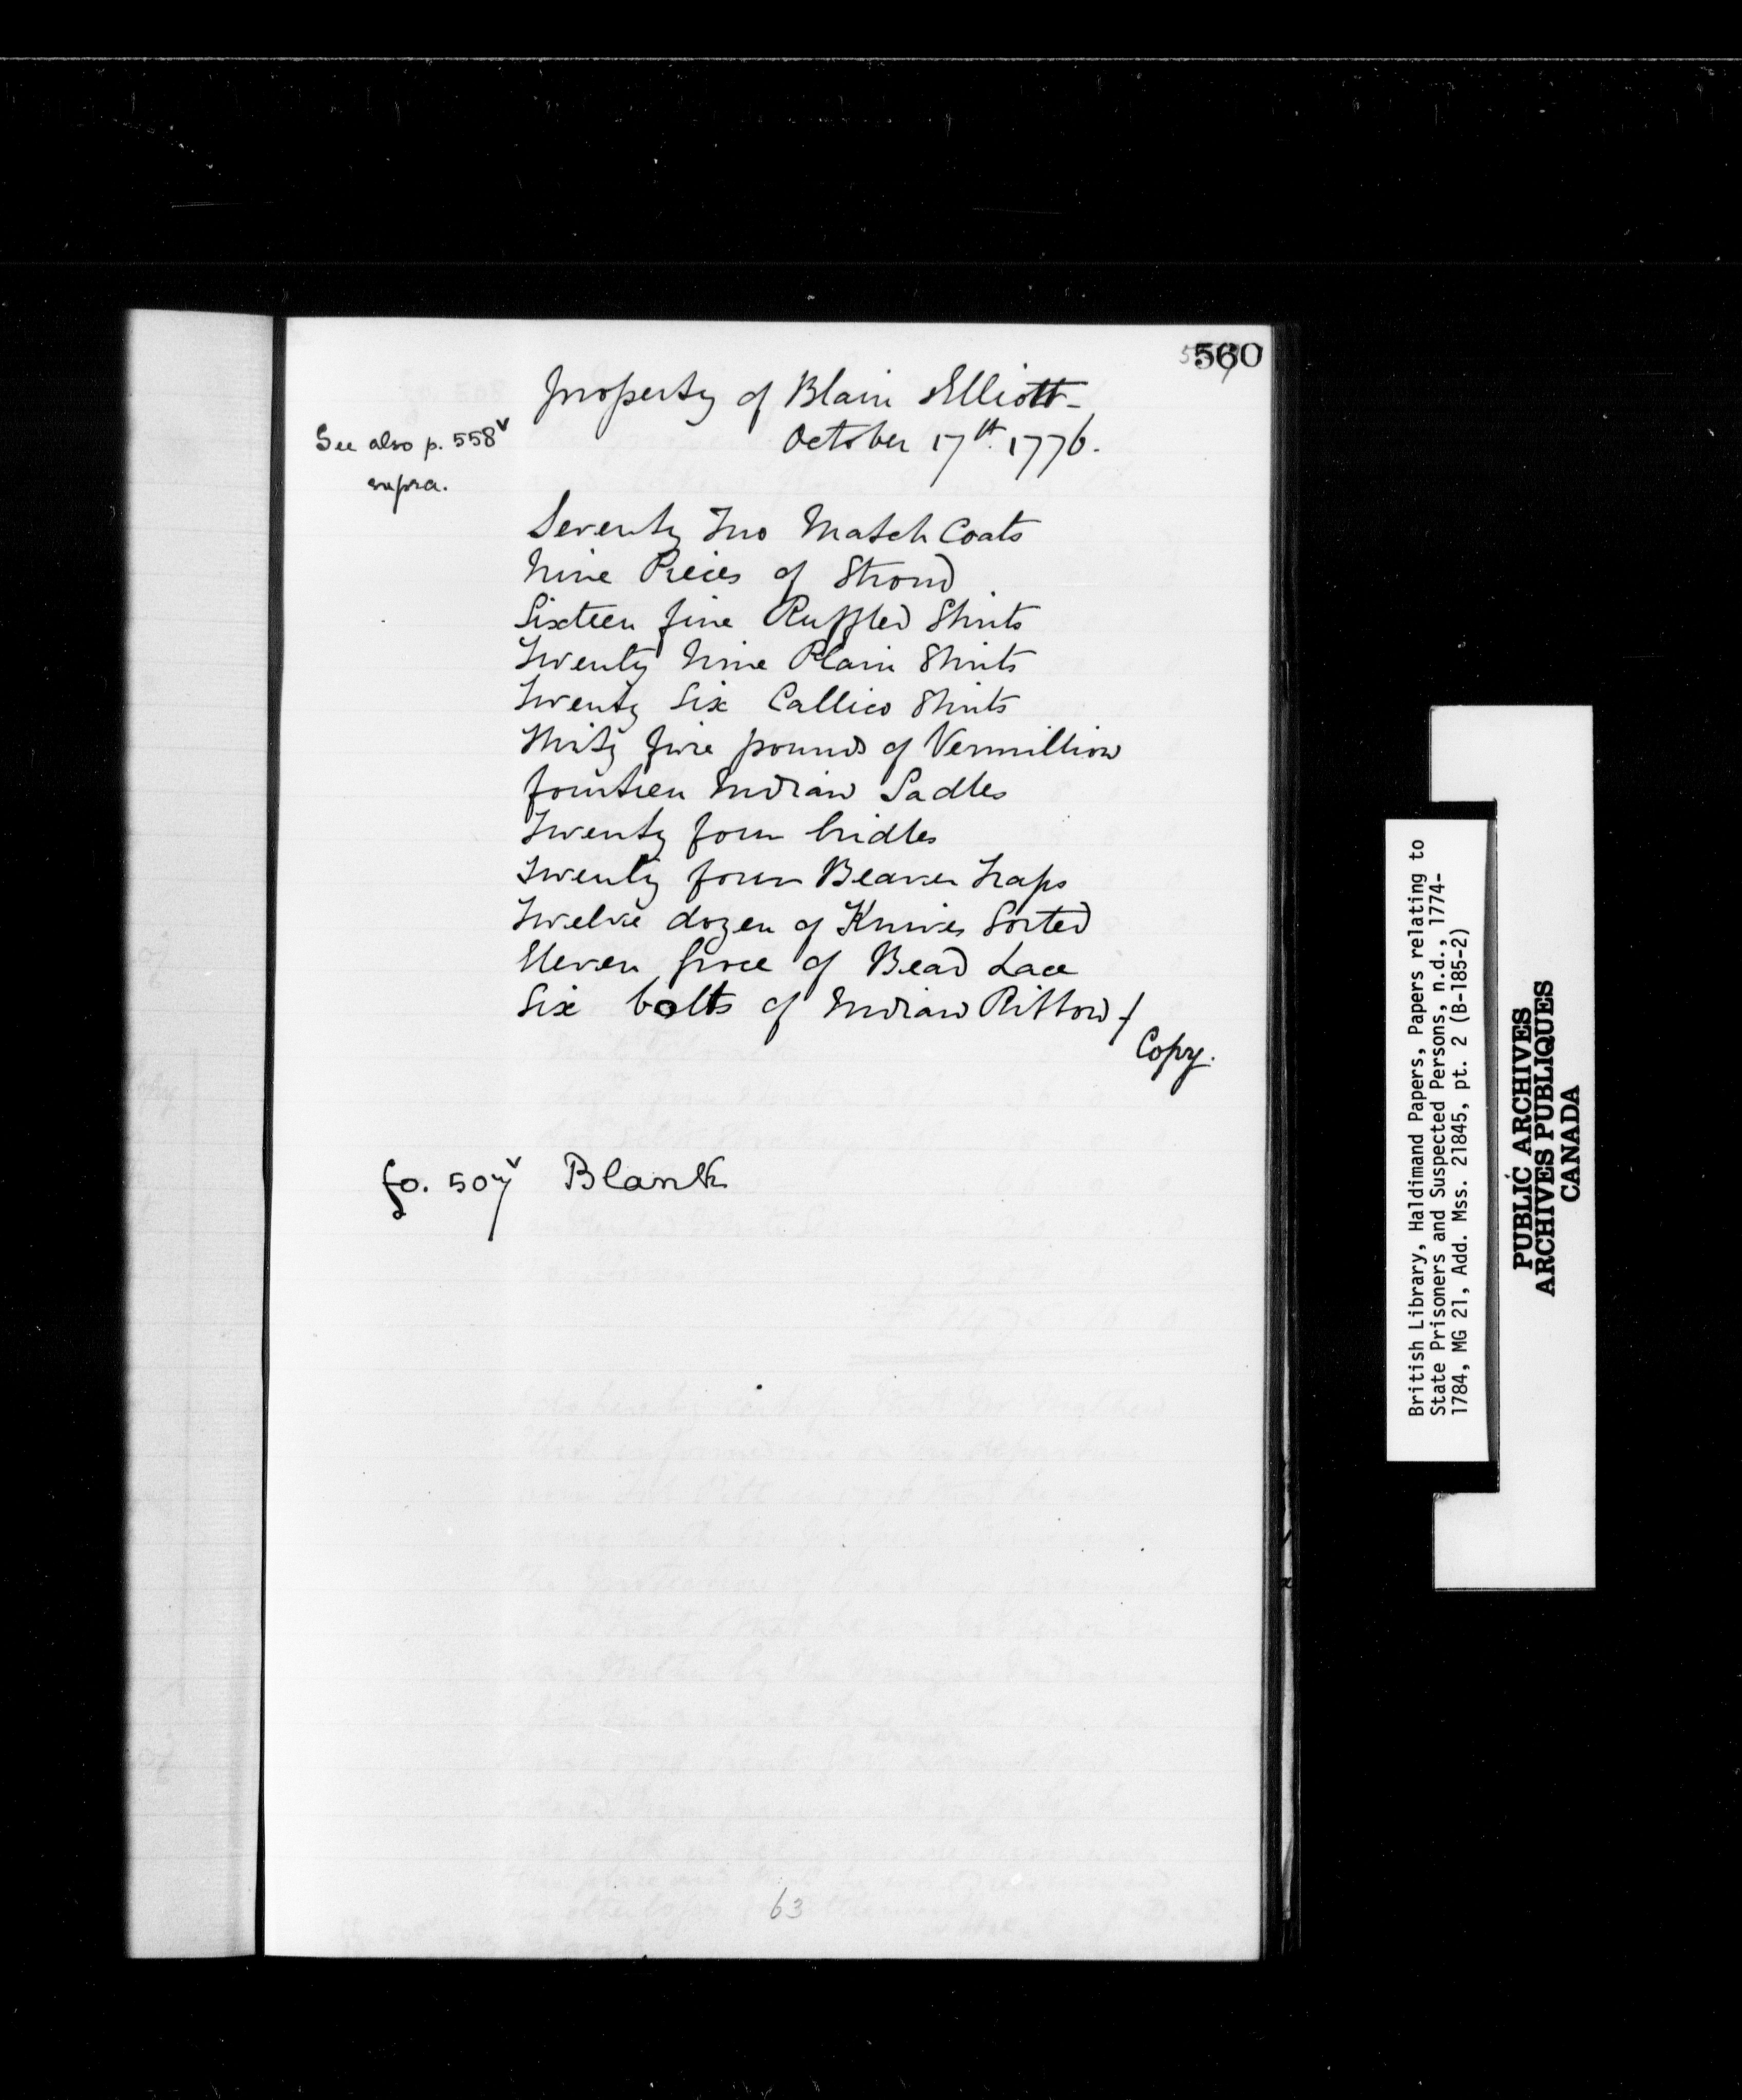 560
property of Blain Elliott -
October 17th. 1776.
See also p. 558v
supra.
Seventy Two Match Coats
Nine Pieces of Stroud
Sixteen fine Ruffled Shirts
Twenty Nine Plain Shirts
Twenty Six Callico Shirts
Thirty five pounds of Vermillion
fourteen Indian Sadles
Twenty four bridles
Twenty four Beaver Traps
Twelve dozen of Knives Sorted
Eleven groce of Bead Lace
Six bolts of Indian Ribbon
Copy.
fo. 507v Blank
63
British Library, Haldimand Papers, Papers relating to
State Prisoners and Suspected Persons, n.d., 1774-
1784, MG 21, Add. Mss. 21845, pt. 2 (B-185-2)
PUBLIC ARCHIVES
ARCHIVES PUBLIQUES
CANADA